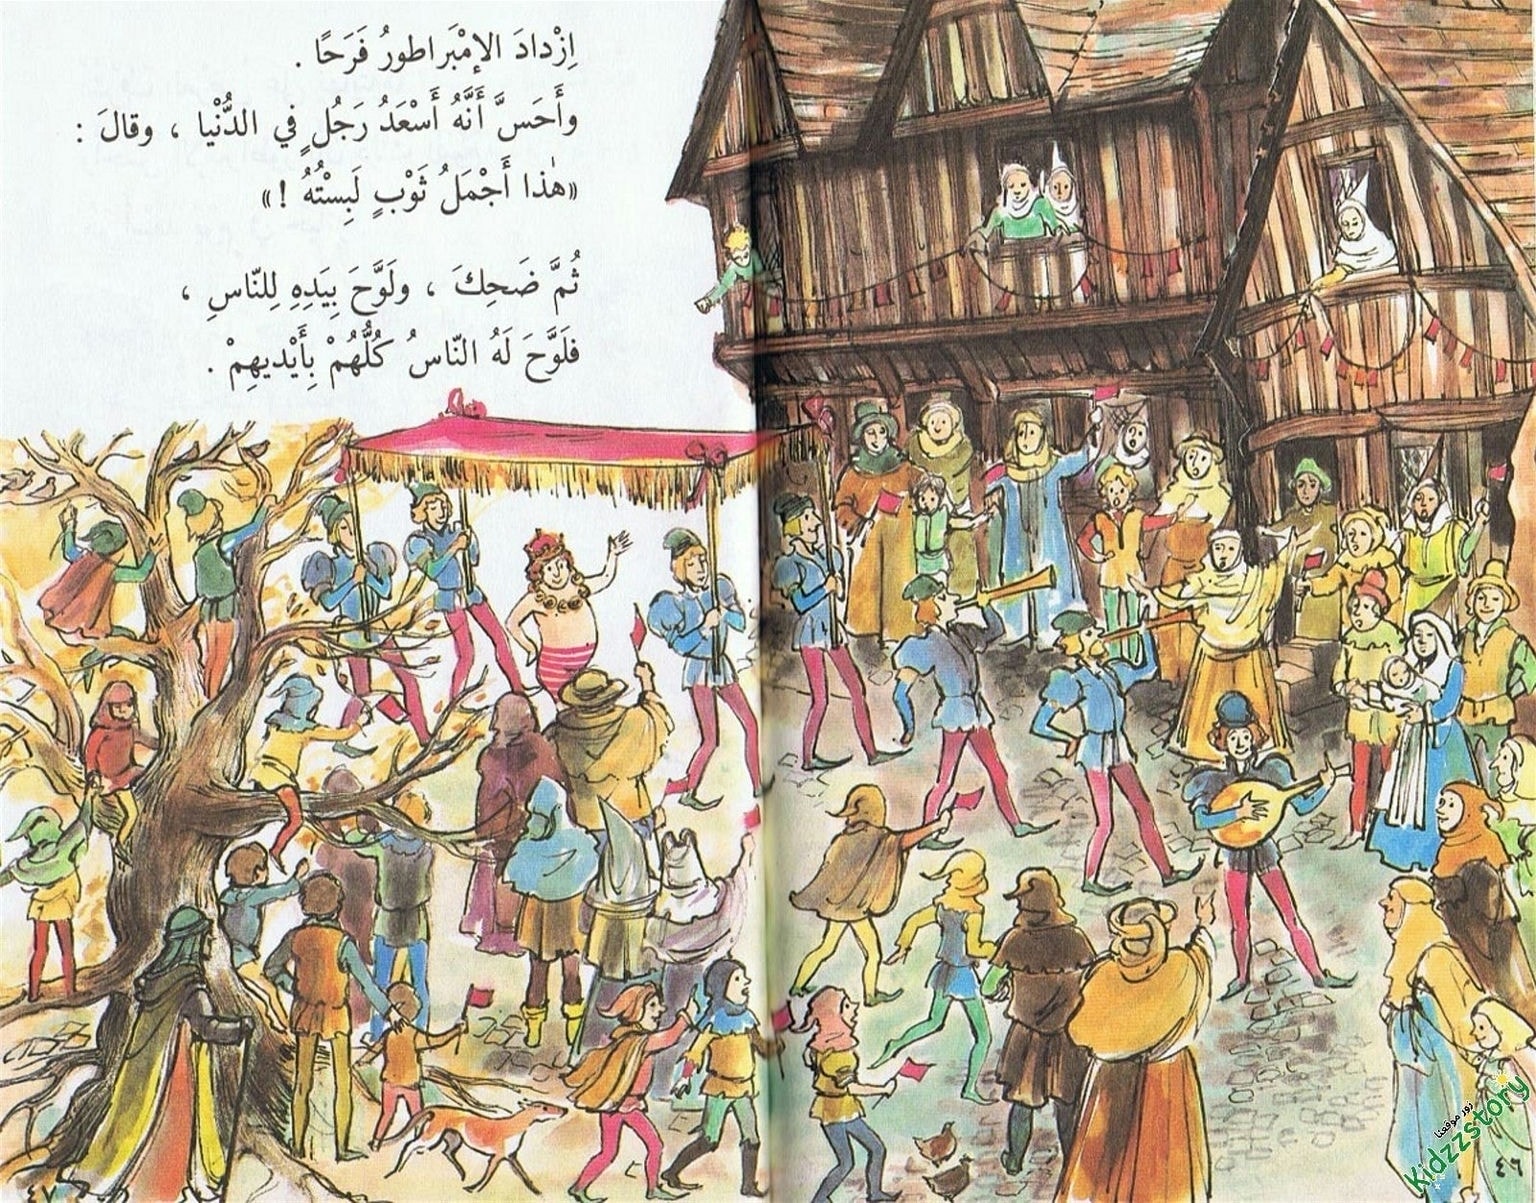 اِزْدادَ الإمْبَراطورُ فَرَحًا .
وأَحَسَّ أَنَّهُ أَسْعَدُ رَجُلٍ في الدُّنْيا ، وقالَ :
«هٰذا أَجْمَلُ ثَوْبٍ لَبِسْتُهُ !»
ثُمَّ ضَحِكَ ، ولَوَّحَ بِيَدِهِ لِلنّاسِ ،
فَلَوَّحَ لَهُ النّاسُ كُلُّهُمْ بِأَيْديهِمْ .
زور موقعنا
Kidzzstory
٤٦
٤٧